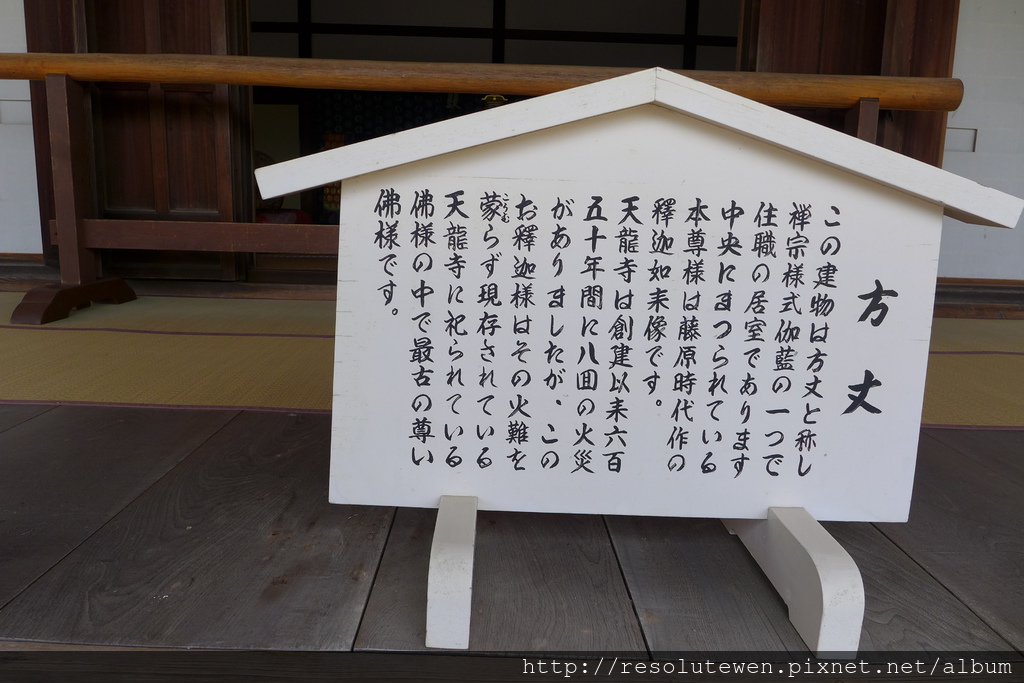 方丈
この建物は方丈と称し
禅宗様式伽藍の一つで
住職の居室であります
中央にまつられている
本尊様は藤原時代作の
釋迦如来像です。
天龍寺は創建以来六百
五十年間に八回の火災
がありましたが、この
お釋迦様はその火難を
蒙らず現存されている
こうむ
天龍寺に祀られている
佛様の中で最古の尊い
佛様です。
http://resolutewen.pixnet.net/album